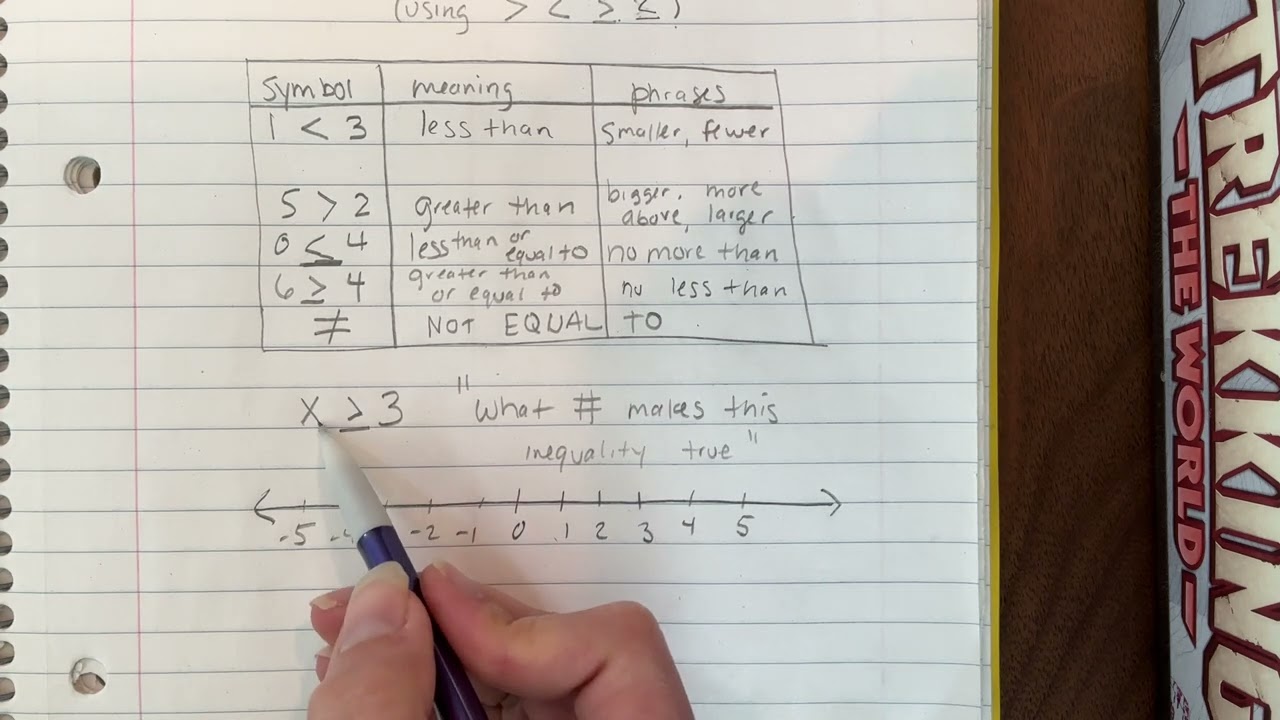 (using > < ≥ ≤)
symbol meaning phrases
1 < 3 less than smaller, fewer
5 > 2 greater than bigger, more
above, larger
0 ≤ 4 less than or
equal to no more than
6 ≥ 4 greater than
or equal to no less than
≠ NOT EQUAL TO
x ≥ 3 "What # makes this
inequality true"
-5 -4 -2 -1 0 1 2 3 4 5
TREKKING
THE WORLD